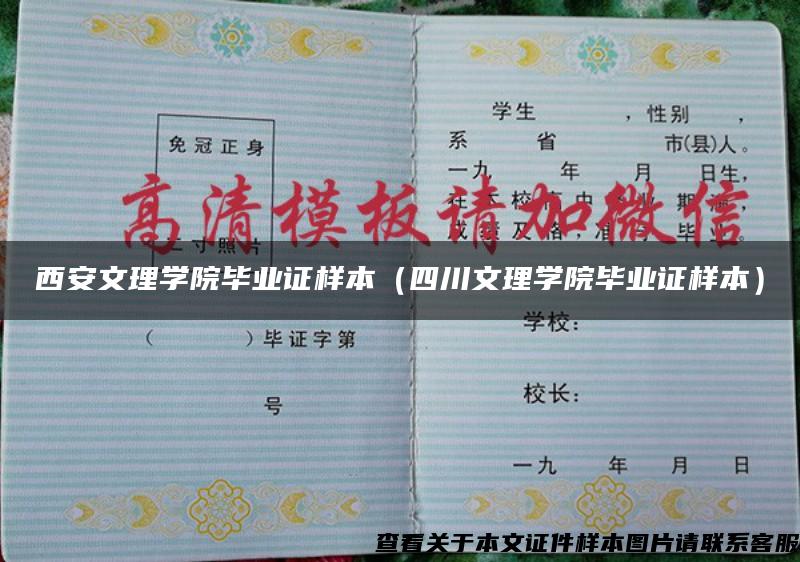 免冠正身
二寸照片
（ ）毕证字第
号
学生 ，性别 ，
系 省 市(县)人。
一九 年 月 日生，
在 校 高中 业 期满，
成绩及格，准予毕业。
高清模板请加微信
西安文理学院毕业证样本（四川文理学院毕业证样本）
学校：
校长：
一九 年 月 日
查看关于本文证件样本图片请联系客服